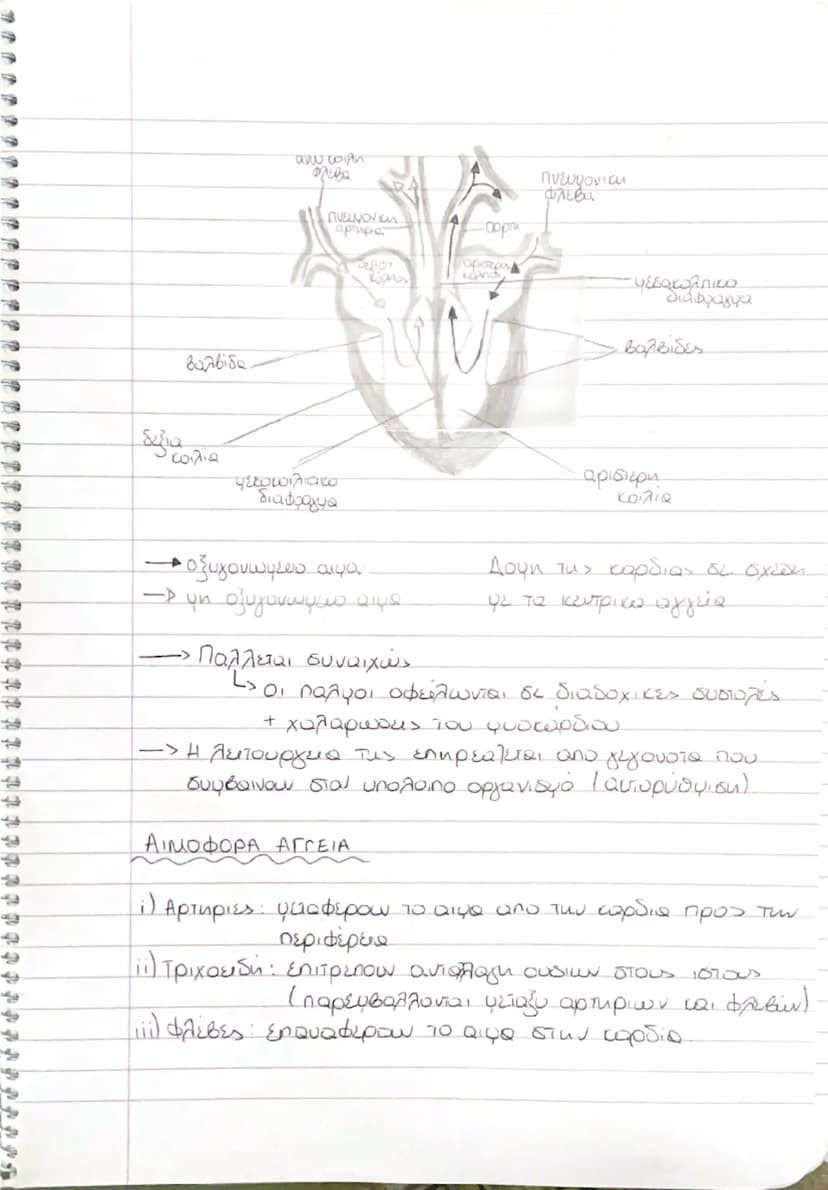 ανω κοιλη
φλεβα
πνευμονικη
φλεβα
πνευμονικη
αρτηρια
αορτη
δεξιος
κολπος
αριστερος
κολπος
μεσοκολπικο
διαφραγμα
βαλβιδα
βαλβιδες
δεξια
κοιλια
μεσοκοιλιακο
διαφραγμα
αριστερη
κοιλια
→ οξυγονωμενο αιμα
→ μη οξυγονωμενο αιμα
Δομη της καρδιας σε σχεση
με τα κεντρικα αγγεια
→ Παλλεται συναιχώς
↳ οι παλμοι οφείλωνται σε διαδοχικες συστολές
+ χαλαρωσεις του μυοκάρδιου
→ Η λειτουργεια της επηρεαζεται απο γεγονοτα που
συμβαινουν στον υπολοιπο οργανισμό (αυτορύθμιση)
ΑΙΜΟΦΟΡΑ ΑΓΓΕΙΑ
i) Αρτηριες: μεταφερουν το αιμα απο την καρδια προς την
περιφέρεια
ii) Τριχοειδή: επιτρεπουν ανταλαγη ουσιων στους ιστους
(παρεμβαλλονται μεταξυ αρτηριων και φλεβών)
iii) Φλέβες: επαναφερουν το αιμα στην καρδια